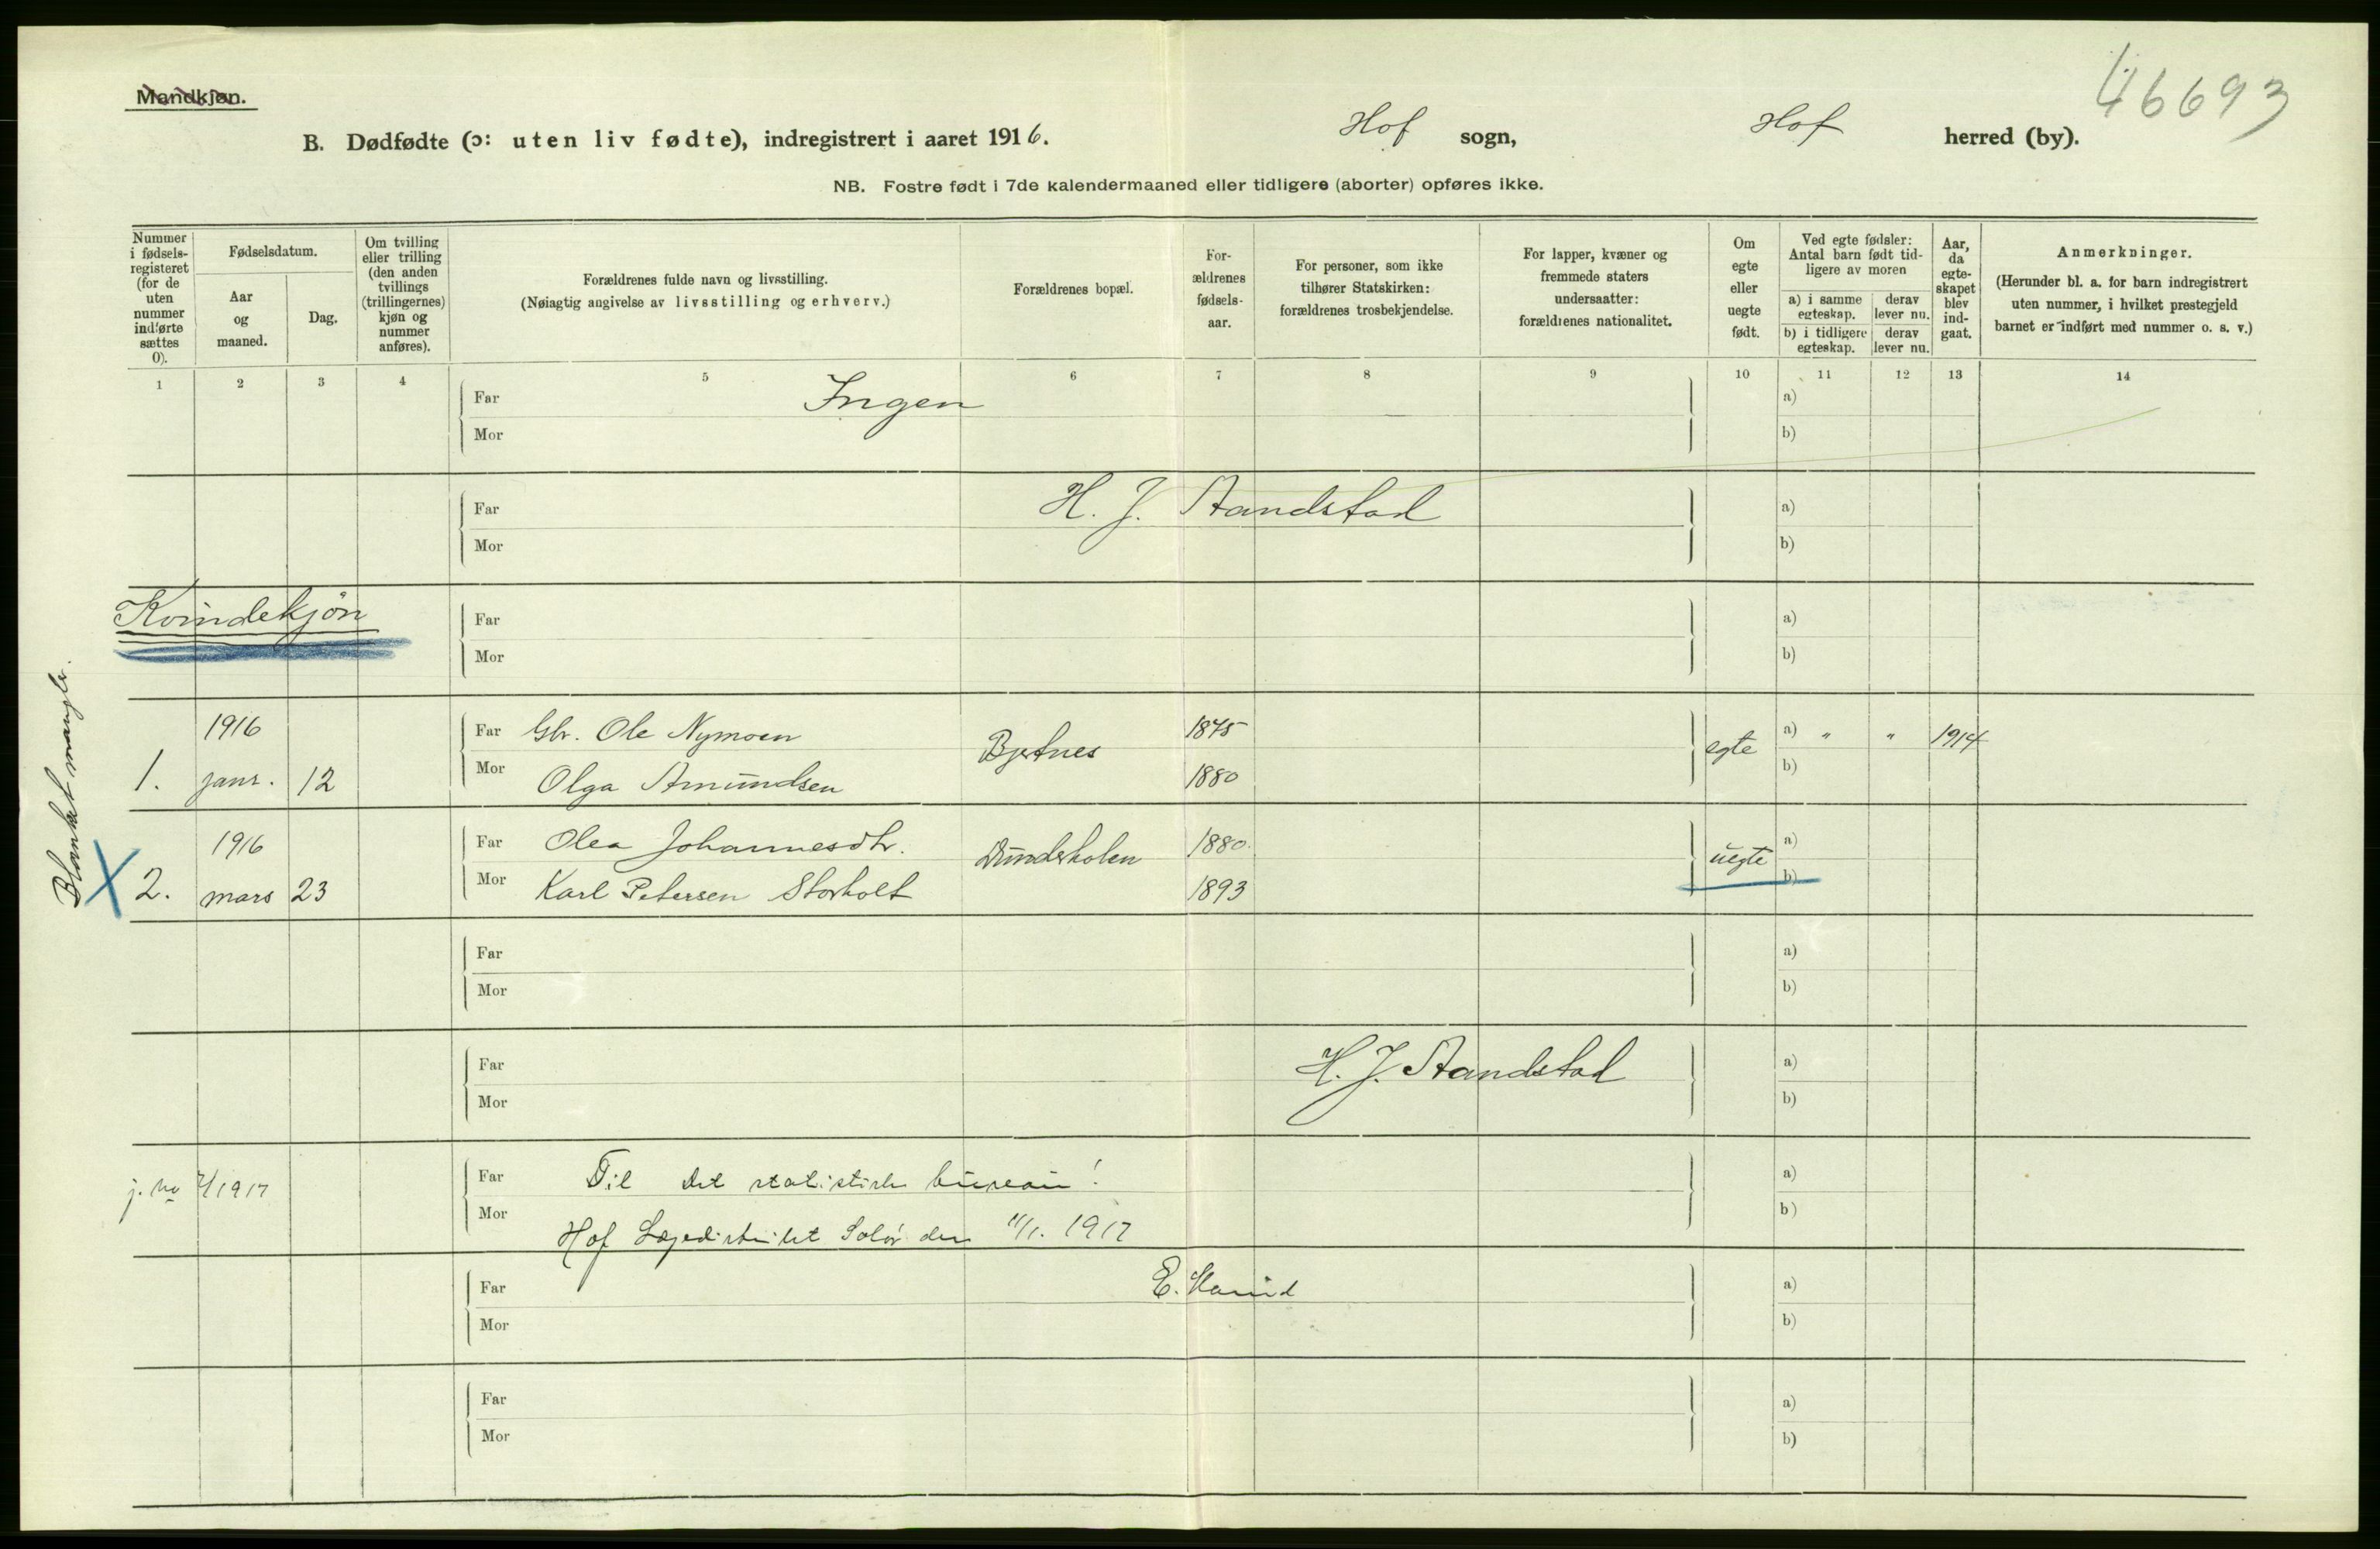 Mandkjøn.
46693
B. Dødfødte (ɔ: uten liv fødte), indregistrert i aaret 1916. Hof sogn, Hof herred (by).
NB. Fostre født i 7de kalendermaaned eller tidligere (aborter) opføres ikke.
Nummer i fødsels-registeret (for de uten nummer indførte sættes 0).
Fødselsdatum.
Aar og maaned.
Dag.
Om tvilling eller trilling (den anden tvillings (trillingernes) kjøn og nummer anføres).
Forældrenes fulde navn og livsstilling.
(Nøiagtig angivelse av livsstilling og erhverv.)
Forældrenes bopæl.
For-ældrenes fødsels-aar.
For personer, som ikke tilhører Statskirken: forældrenes trosbekjendelse.
For lapper, kvæner og fremmede staters undersaatter: forældrenes nationalitet.
Om egte eller uegte født.
Ved egte fødsler: Antal barn født tid-ligere av moren
a) i samme egteskap.
derav lever nu.
b) i tidligere egteskap.
derav lever nu.
Aar, da egte-skapet blev ind-gaat.
Anmerkninger.
(Herunder bl. a. for barn indregistrert uten nummer, i hvilket prestegjeld barnet er indført med nummer o. s. v.)
1 2 3 4 5 6 7 8 9 10 11 12 13 14
Far Ingen a)
Mor b)
Far H. J. Standstad a)
Mor b)
Kvindekjøn
Far a)
Mor b)
Blanket mangler.
1916 Far Gbr. Ole Nymoen Bjertnes 1875 egte a) " " 1914
1. janr. 12 Mor Olga Amundsen 1880 b)
1916 Far Olea Johannesdtr. Dunderholen 1880. uegte a)
2. mars 23 Mor Karl Petersen Storholt 1893 b)
Far a)
Mor b)
Far H. J. Standstad a)
Mor b)
j. no 7/1917 Far Til det statistiske bureau! a)
Mor Hof Lægedistrikt Solør den 11/1. 1917 b)
Far E. a)
Mor b)
Far a)
Mor b)